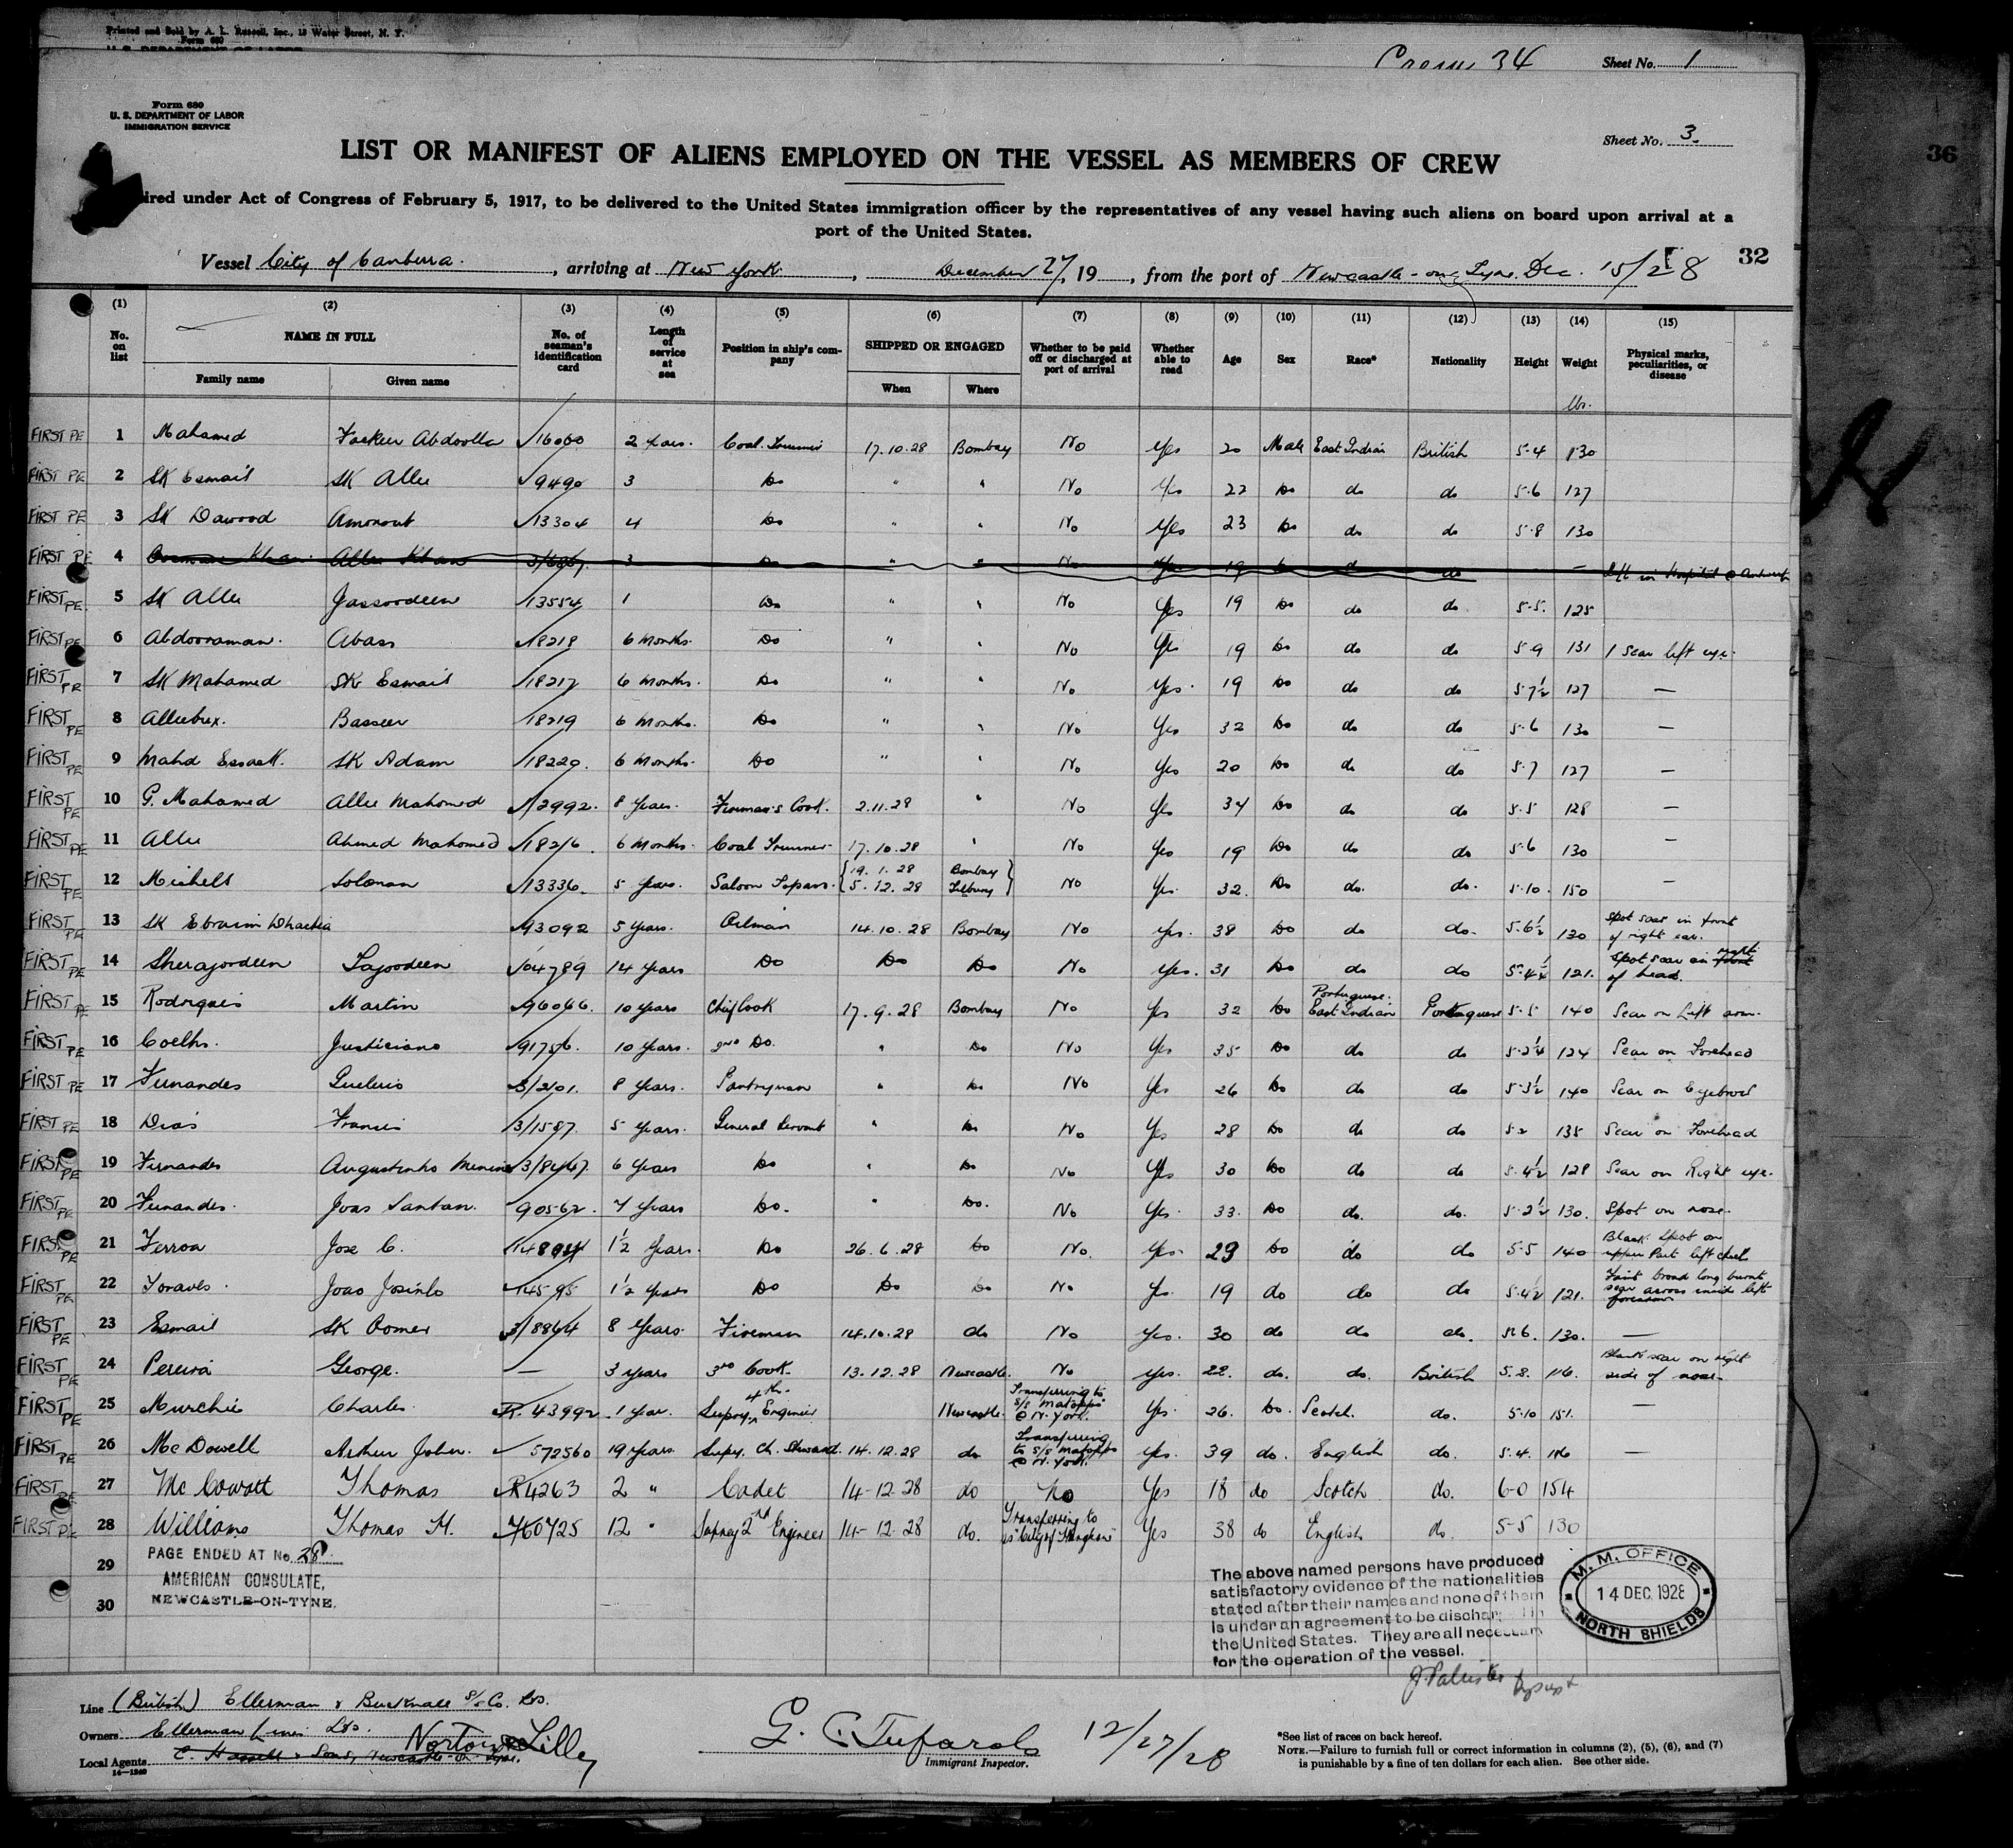 Printed and Sold by A. L. Russell, Inc., 13 Water Street, N. Y.
Form 680
U. S. DEPARTMENT OF LABOR
34 Sheet No. 1
Form 680
U. S. DEPARTMENT OF LABOR
IMMIGRATION SERVICE
Sheet No. 3
36
LIST OR MANIFEST OF ALIENS EMPLOYED ON THE VESSEL AS MEMBERS OF CREW
ired under Act of Congress of February 5, 1917, to be delivered to the United States immigration officer by the representatives of any vessel having such aliens on board upon arrival at a
port of the United States.
32
Vessel City of Canberra, arriving at New York, December 27, 19, from the port of Newcastle-on-Tyne. Dec. 15/28
(1) (2) (3) (4) (5) (6) (7) (8) (9) (10) (11) (12) (13) (14) (15)
No. on list NAME IN FULL Family name Given name No. of seaman's identification card Length of service at sea Position in ship's company SHIPPED OR ENGAGED When Where Whether to be paid off or discharged at port of arrival Whether able to read Age Sex Race* Nationality Height Weight Physical marks, peculiarities, or disease
lbs.
FIRST PE 1 Mahamed Abdoolla 16060 2 years. Coal Trimmer 17.10.28 Bombay No Yes 20 Male East Indian British 5-4 130
FIRST PE 2 SK Esmail SK Allee 9490 3 Do " " No Yes 22 Do do do 5.6 127
FIRST PE 3 SK Dawood 13304 4 Do " " No Yes 23 Do do do 5.8 130
FIRST PE 4 Khan Allee Khan 3 Do " " No Yes 19 do do left in Hospital @ Antwerp
FIRST PE 5 SK Allee Jassoodeen 13554 1 Do " " No Yes 19 Do do do 5-5. 125
FIRST PE 6 Abdooraman. Abass 18218 6 Months. Do " " No Yes 19 Do do do 5-9 131 1 Scar left eye.
FIRST PE 7 SK Mahamed SK Esmail 18217 6 Months. Do " " No Yes. 19 Do do do 5-7½ 127 —
FIRST PE 8 Alleebux. Basseer 18219 6 Months. Do " " No Yes 32 Do do do 5-6 130 —
FIRST PE 9 Mahd SK Adam 18220. 6 Months. Do " " No Yes 20 Do do do 5-7 127 —
FIRST PE 10 G. Mahamed Allee Mahomed 12992. 8 Years. Fireman's Cook. 2.11.28 " No Yes 34 Do do do 5-5 128 —
FIRST PE 11 Allee Ahmed Mahomed 18216. 6 Months. Coal Trimmer 17.10.28 " No Yes 19 Do do do 5-6 130 —
FIRST PE 12 Solomon 13336. 5 Years. Saloon Topass. {19.1.28 Bombay 5.12.28 Tilbury} No Yes. 32. Do do. do. 5.10. 150 —
FIRST PE 13 SK Ebraim 93092 5 Years. Oilman 14.10.28 Bombay No Yes. 38 Do do do. 5-6½ 130 Spot scar in front of right ear.
FIRST PE 14 Sherajordeen 04789 14 Years Do Do Do No Yes. 31 Do do do 5-4¼ 121. Spot scar on front right of head.
FIRST PE 15 Rodrigues Martin 96066. 10 Years Chief Cook 17.9.28 Bombay No Yes 32 Do Portuguese. East Indian Portuguese 5-5 140 Scar on Left arm.
FIRST PE 16 Coelho. Justiciano 91756. 10 Years. 2nd Do. " Do No Yes 35 Do do do 5-2¼ 124 Scar on Forehead
FIRST PE 17 Fernandes 3/2101. 8 Years. Pantryman " Do No Yes 26 Do do do 5-3½ 140 Scar on Eyebrow
FIRST PE 18 Dias Francis 3/1587. 5 Years. General Servant " Do No Yes 28 Do do do 5.2 135 Scar on Forehead
FIRST PE 19 Fernandes Augustinho 6 Years Do " Do No Yes 30 Do do do 5.4½ 128 Scar on Right eye.
FIRST PE 20 Fernandes. Joao Santan. 90562. 7 Years Do. " Do. No Yes. 33. Do do. do. 5-2½ 130. Spot on nose.
FIRST PE 21 Jose C. 1½ Years. Do 26.6.28 Do No. Yes. 29 Do do do 5.5 140 Black Spot on upper Part left cheek
FIRST PE 22 Joao 14595 1½ Years Do Do Do No Yes. 19 do do do 5.4½ 121. Faint broad long burnt scar across inside left forearm
FIRST PE 23 Esmail SK Oomer 3/8864 8 Years. Fireman 14.10.28 do No Yes. 30 do do do. 5.6. 130. —
FIRST PE 24 Pereira George. — 3 Years 3rd Cook. 13.12.28 Newcastle. No Yes. 22. do. do. British 5.8. 116. Black scar on right side of nose.
FIRST PE 25 Murchie Charles R. 43992 1 Year. Supny. 4th. Engineer Newcastle. Transferring to s/s "Matoppo" @ N. York. Yes. 26. Do. Scotch. do. 5.10 151. —
FIRST PE 26 McDowell Arthur John. 572560 19 Years. Supy. Ch. Steward. 14.12.28 do Transferring to s/s Matoppo @ N. York. Yes. 39 do. English do. 5.4. 116 —
FIRST PE 27 Mc Cowatt Thomas R4263 2 " Cadet 14-12.28 do No Yes 18 do Scotch do. 6-0 154
FIRST PE 28 Williams Thomas H. 760725 12 " Suprny 2nd Engineer 14-12.28 do. Transferring to ss "City of Yes 38 do English do. 5-5 130
29 PAGE ENDED AT No. 28
AMERICAN CONSULATE,
30 NEWCASTLE-ON-TYNE.
The above named persons have produced
satisfactory evidence of the nationalities
stated after their names and none of them
is under an agreement to be discharged in
the United States. They are all necessary
for the operation of the vessel.
M. M. OFFICE
14 DEC. 1928
NORTH SHIELDS
J. Pallister
Line (British) Ellerman & Bucknall S/S Co. Ltd.
Owners Ellerman Lines Ltd.
Local Agents & Sons, Newcastle-on-Tyne. Norton Lilly
14—1240
G. C. Tufarolo 12/27/28
Immigrant Inspector.
*See list of races on back hereof.
NOTE.—Failure to furnish full or correct information in columns (2), (5), (6), and (7)
is punishable by a fine of ten dollars for each alien. See other side.